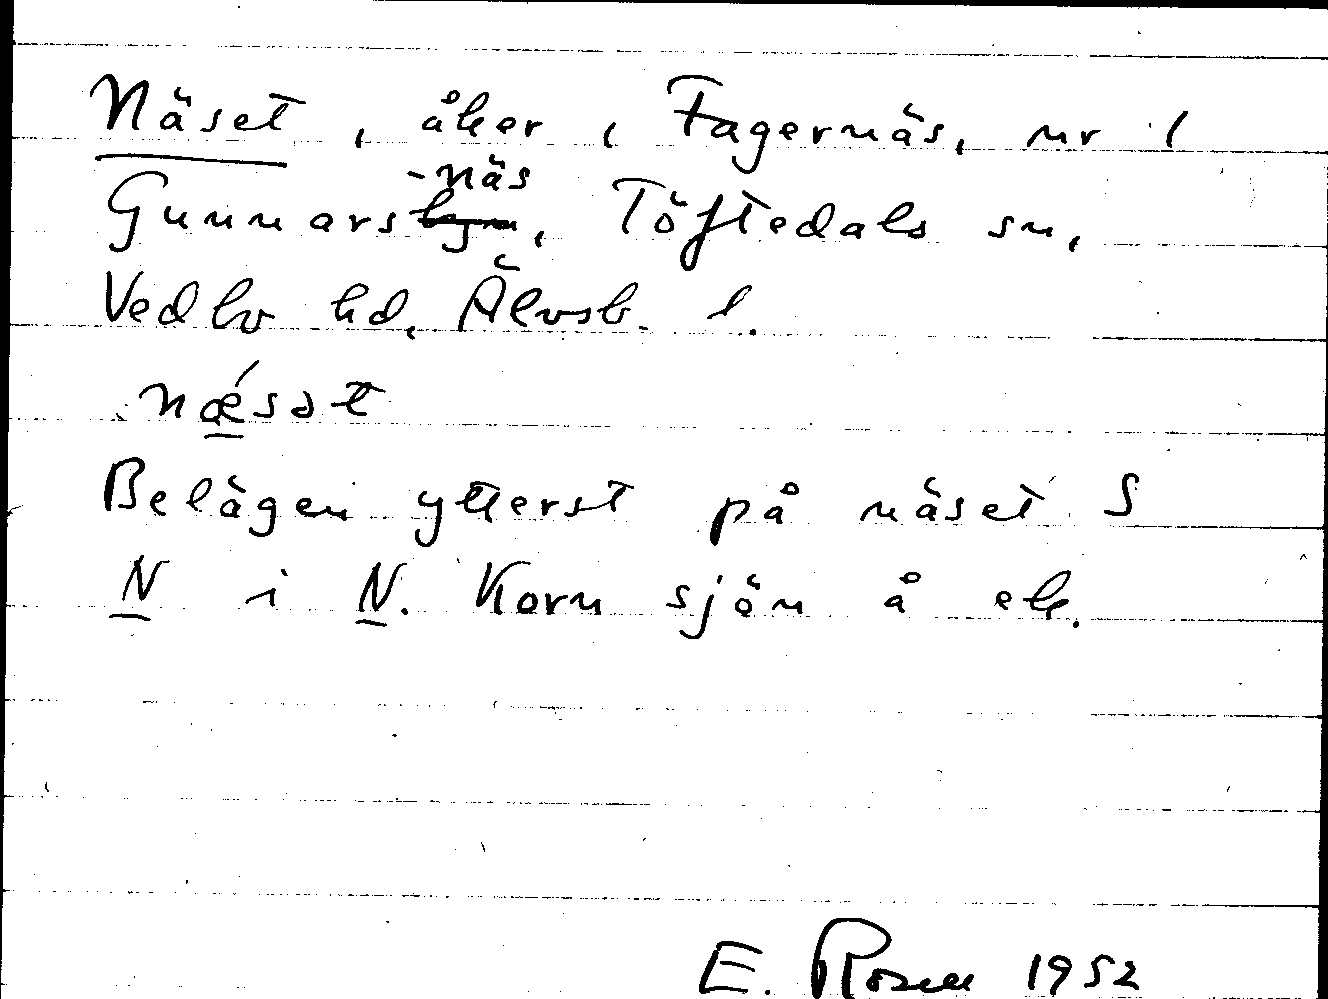 Näset, åker i Fagernäs, nr 1
-näs
Gunnarsbyn, Töftedals sn,
Vedbo hd, Älvsb. l.
nǽsət
Belägen ytterst på näset S
N i N. Korn sjön å ek.
E. Rosen 1952